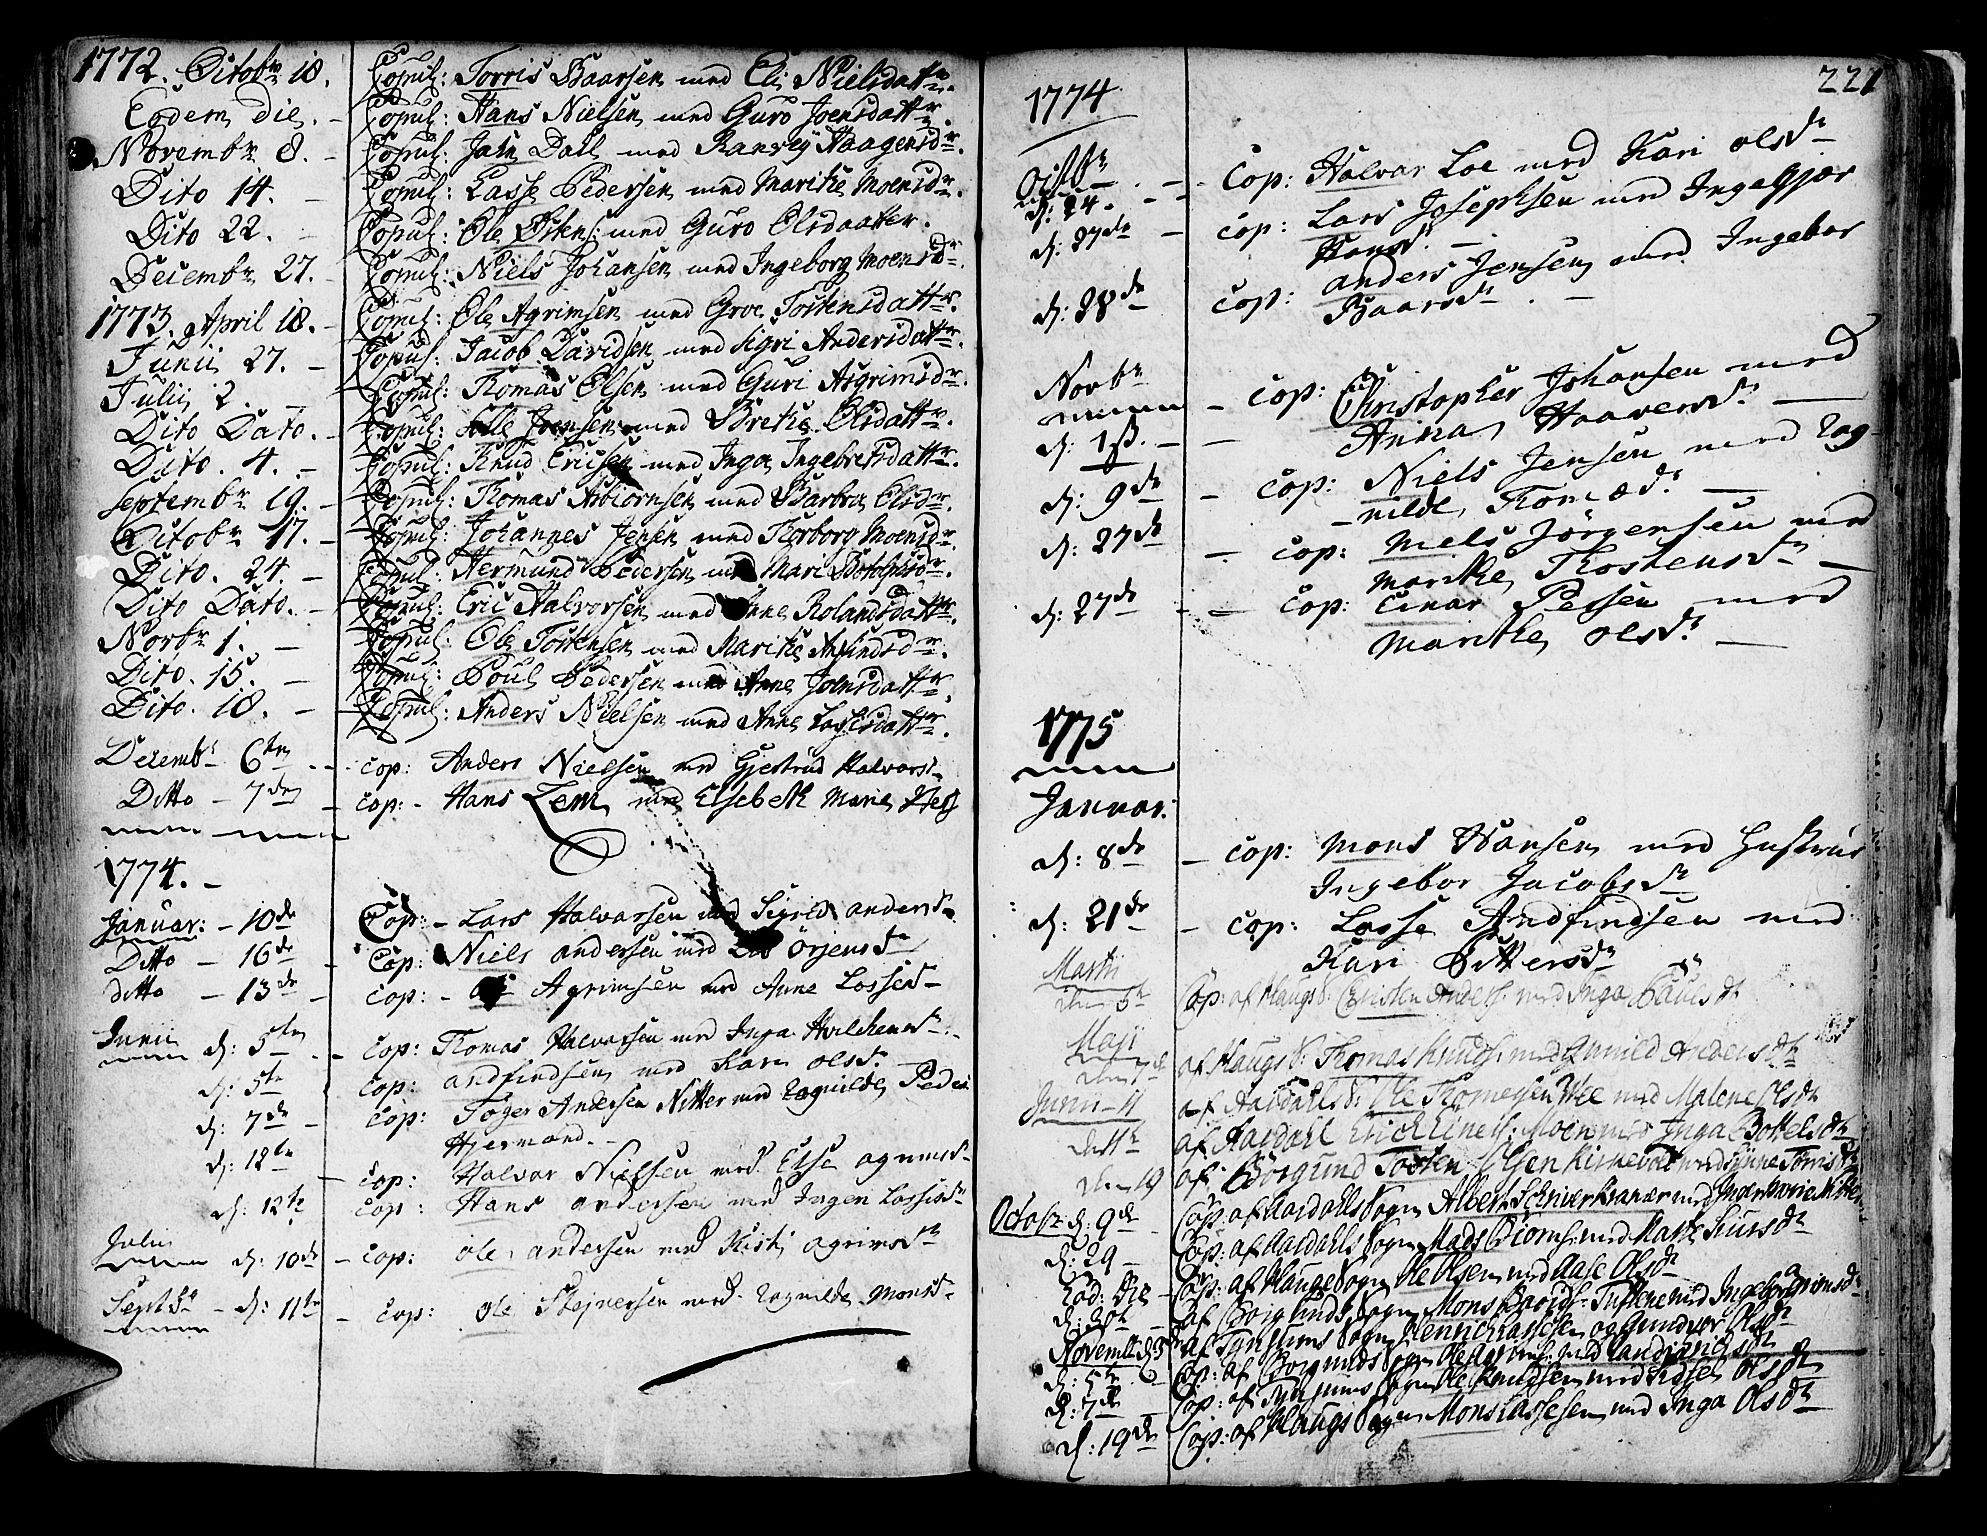 1772. Octobr 18. Copul: Torris Baarsen med Eli Nielsdattr.
Eodem die. – Copul: Hans Nielsen med Guro Joensdattr.
Novembr 8. – Copul: Jahn Dall med Ranvey Haagensdr.
Dito 14. – Copul: Lasse Pedersen med Marithe Moensdr.
Dito 22. – Copul: Ole Østens: med Guro Olsdaatter.
Decembr 27. – Copul: Niels Johansen med Ingeborg Moensdr.
1773. April 18. – Copul: Ole Agrimsen med Groe Tostensdattr.
Junii 27. – Copul: Jacob Davidsen med Sigri Andersdattr.
Julii 2. – Copul: Thomas Olsen med Guri Asgrimsdr.
Dito Dato. – Copul: Joensen med Brethe Olsdattr.
Dito. 4. – Copul: Knud Ericsen med Inga Ingebretsdattr.
Septembr 19. – Copul: Thomas Asbiornsen med Barbra Olsdr.
Octobr 17. – Copul: Johannes Jensen med Thorborg Moensdr.
Dito. 24. – Copul: Hermund Pedersen med Mari
Dito Dato. – Copul: Eric Halvorsen med Anne Rolandsdattr.
Novbr 1. – Copul: Ole Tostensen med Marithe Anfindsdr.
Dito. 15. – Copul: Poul Pedersen med Anne Joensdattr.
Dito. 18. – Copul: Anders Nielsen med Anne Lassisdattr.
Decembr 6ten – cop: Anders Nielsen med Gjertrud Halvorsd
Ditto – 7den – cop: – Hans Lem med Elsebeth Marie
1774. –
Januar: – 10de Cop: – Lars Halvarsen med Sigrid andersdr
Ditto – 16de – Cop: Niels andersen med Ørjensdr
ditto – 13de – cop: – Agrimsen med Anne Lossed –
Junii d: 5ten – cop: Thomas Halvarsen med Inga
d: 5te cop: andfindsen med Kari olsdr.
d: 7de – cop: Toger Andersen Nitter med Ragnilde Peder
Hjermand. –
d: 12te – cop: Halvor Nielsen med Else
d: 12te cop: Hans andersen med Ingen
Julii d: 10de – cop: ole andersen med Kisti agrimsdr
Septbr – d: 11te – cop: ole Stejnersen med Ragnilde Monsdr
221
1774
Octbr
d: 24. – – Cop: Halvar Loe med Kari olsdr
d: 27de – cop: Lars Josephsen med Ingebjør
Hansdr. –
d: 28de cop: anders Jensen med Ingebor
Baarsdr. –
Novbr
d: 1st. – – cop: Christopher Johansen med
Anna Haaversdr. –
d: 9de – cop: Niels Jensen med Rag-
nilde
d: 27de – cop: Niels Jörgensen med
Marithe Thostensdr –
d: 27de – – cop: Einar Persen med
Marithe olsdr. –
1775
Januar:
d: 8de – cop: Mons Hansen med Hustrue
Ingebor Jacobsdr
d: 21de – cop: Lasse Andfindsen med
Kari Pittersdr
Martii
den 5te Cop: af Haugs S: Christen Anders: med Inga
Maji
den 7de af Haugs S: Thomas Knuds: med Gunild Andersdtr
Junii – 11 af Aardalls S: Ole Thomesen Wee med Malene Olsdtr
af Aardahl Erich Einers: Moen med Inga Bottelsdtr
den 19 af Borgund Tosten Olsen Kirnevol med Synne Torrisdtr
October d: 9de Cop: af Aardalls Sogn Albert Schriver med Ingerkarie
d: 29 – Cop: af Aardalls Sogn Mads Biorns: med Marte
Eod: Die – Cop: af Hauge Sogn Ole Olsen med Aase Olsdtr
af Borgunds Sogn Mons Davids: med Ingeborg
Novembr af Tønjums Sogn Henrich Lassesen og Gundvor Olsdtr
d: 5te – Cop: af Borgunds Sogn med
d: 7de Cop: af Tønjums Sogn Ole Knudsen med Olsdtr
d: 19de Cop: af Haugs Sogn Mons Lassesen med Inga Olsdtr